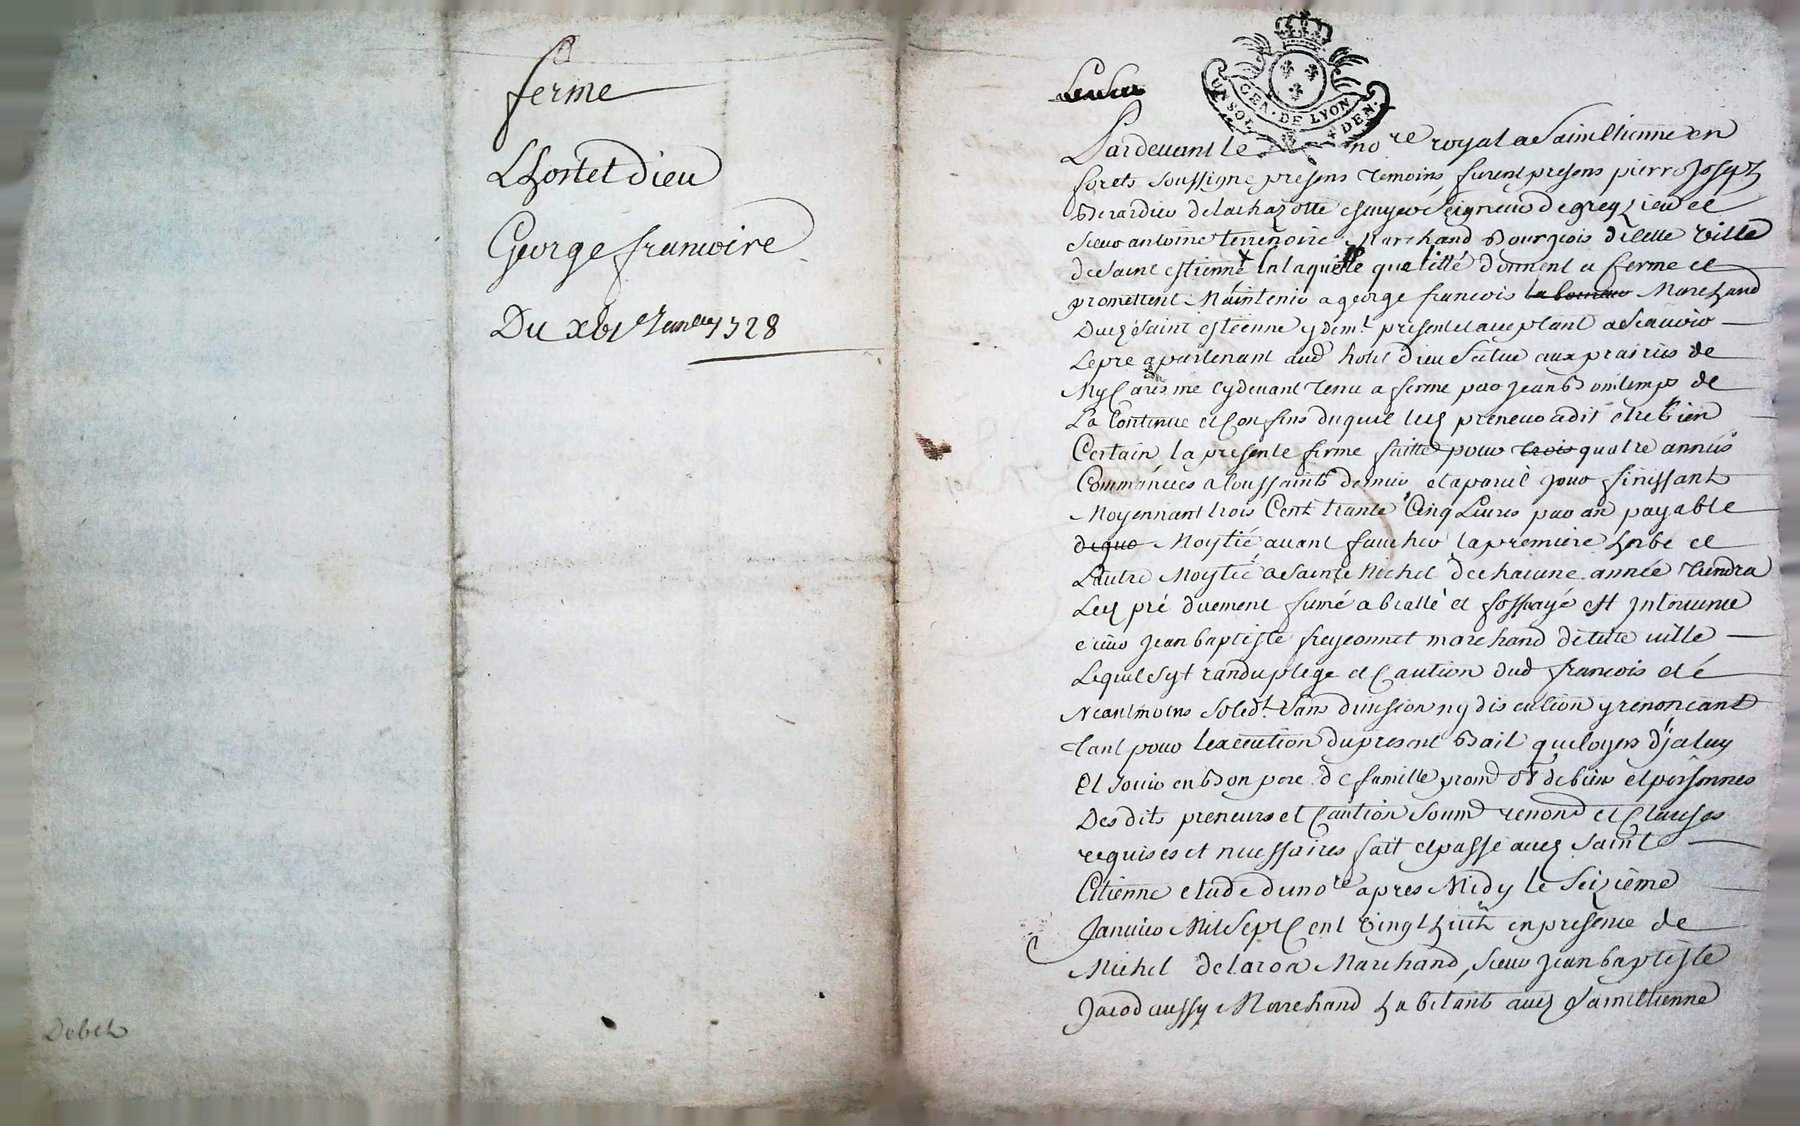 ferme
Lhostel dieu
George francoire
Du xbi^e Janu^er 1728
Debeh
UN SOL GEN. DE LYON DEN.
Pardevant le no^re royal a Saint Etienne en
forets soussigné presens temoins furent presens pierre Joseph
Berardieu de la chazotte escuyer Seigneur de grezieu et
sieur antoine tenenoire Marchand Bourgeois de cette ville
de Saint estienne en laquelle qualitté donnent a ferme et
promettent Maintenir a george francois Marchand
dud Saint estienne y dem^t present et aceptant a Scavoir
Le pre apartenant aud hotel dieu Scitue aux prairies de
Mycaresme cy devant tenu a ferme par jean Bontemps de
La Continue et Confins duquel led preneur a dit etre bien
Certain la presente ferme faitte pour trois quatre années
Commancées a toussaints dernier et a pareil jour finissant
Moyennant trois Cent trante Cinq Livres par an payable
Moytié avant faucher la premiere herbe et
Lautre Moytié a Saint Michel de chacune année tiendra
Led pré duement fumé a beallé et fossoyé est Intervenu
sieur jean baptiste freyconnet marchand de cette ville
Lequel syt randu plege et Caution dud francois et é
Neantmoins Solid^t Sans division ny discution y renoncant
tant pour lexecution du present Bail que loyers djceluy
Et jouir en Bon pere de famille promd obd de biens et personnes
Des dits preneurs et Caution Soumd renond et Clauses
requises et necessaires fait et passé aud Saint
Etienne etude du no^re apres Midy le Seizième
Janvier Mil Sept Cent vingt huit en presence de
Michel delaroa Marchand, Sieur jean baptiste
Jacod aussy Marchand habitants aud Saint Etienne